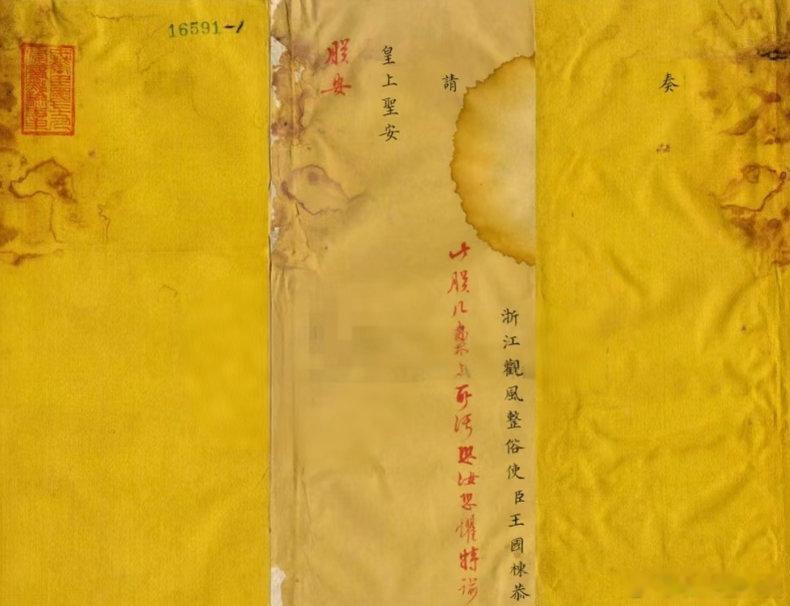 奏
浙江觀風整俗使臣王國棟恭
請
皇上聖安
朕安
此朕几案上所污恐汝恐懼特諭
16591-1